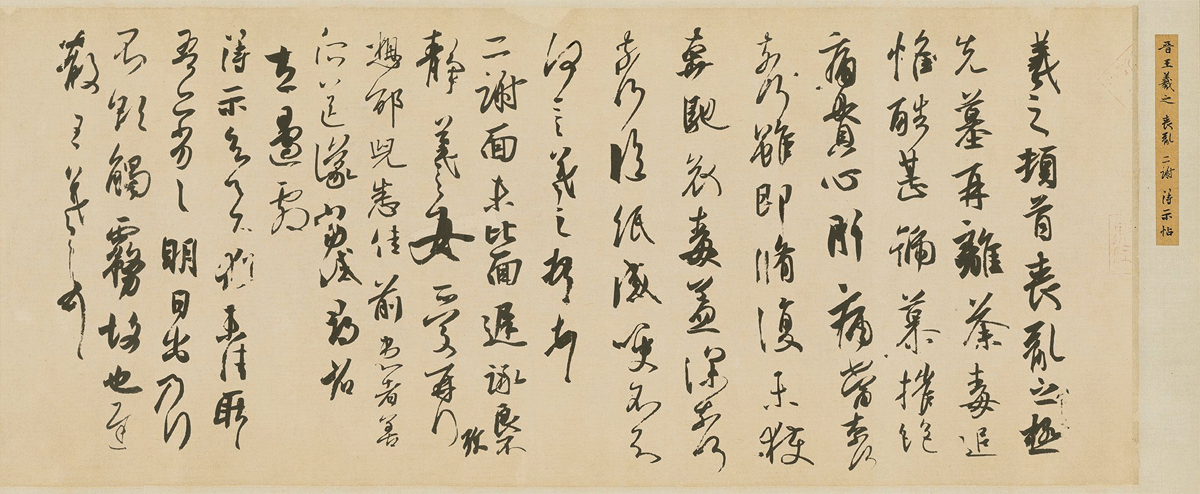 羲之頓首喪亂之極
先墓再離荼毒追
惟酷甚號慕摧絕
痛貫心肝痛當奈何
奈何雖即脩復未獲
奔馳哀毒益深奈何
奈何臨紙感哽不知
何言羲之頓首頓首
二謝面未比面遲詠良不
靜羲之女愛再拜
想邰兒悉佳前患者善
所送議當試尋省
左邊劇
得示知足下猶未佳耿耿
吾亦劣劣明日出乃行
不欲觸霧故也遲
散王羲之頓首
晉王羲之 喪亂 二謝 得示帖